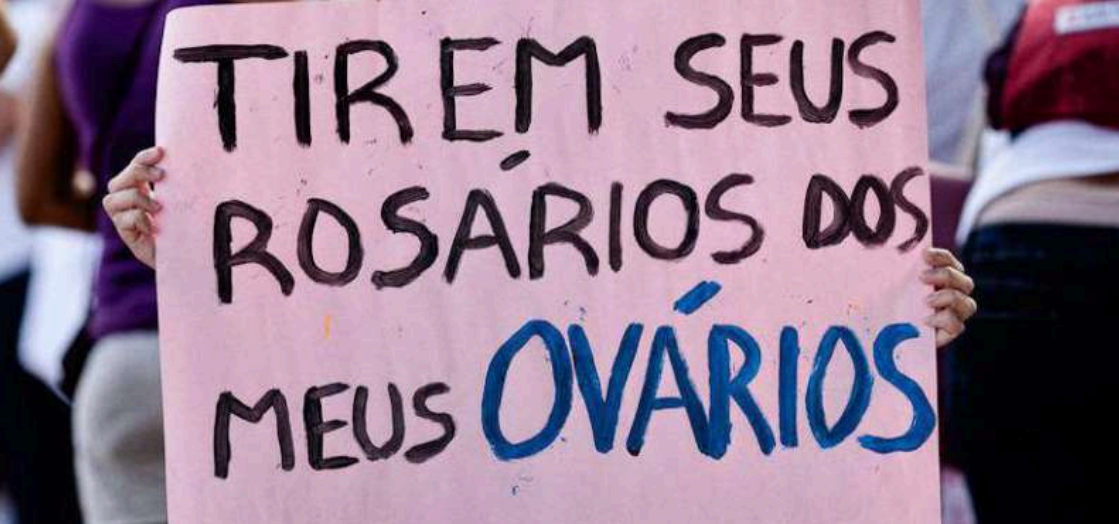 TIREM SEUS
ROSÁRIOS DOS
MEUS OVÁRIOS